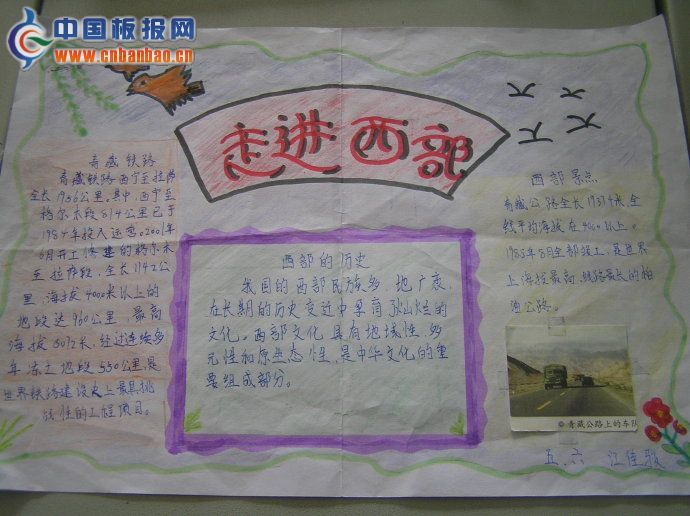 中国板报网
www.cnbanbao.cn
走进西部
青藏铁路
青藏铁路西宁至拉萨
全长1956公里。其中,西宁至
格尔木段814公里已于
1984年投入运营。2001年
6月开工修建的格尔木
至拉萨段,全长1142公
里,海拔4000米以上的
地段达960公里,最高
海拔5072米,经过连续多
年冻土地段550公里,是
世界铁路建设史上最具挑
战性的工程项目。
西部的历史
我国的西部民族多,地广袤,
在长期的历史变迁中孕育
灿烂的
文化。西部文化具有地域性、多
元性和原生态性,是中华文化的重
要组成部分。
西部景点
青藏公路全长1937米,全
线平均海拔在4000以上。
1985年8月全部竣工,是世界
上海拔最高、线路最长的柏
油公路。
青藏公路上的车队
五.六 江佳